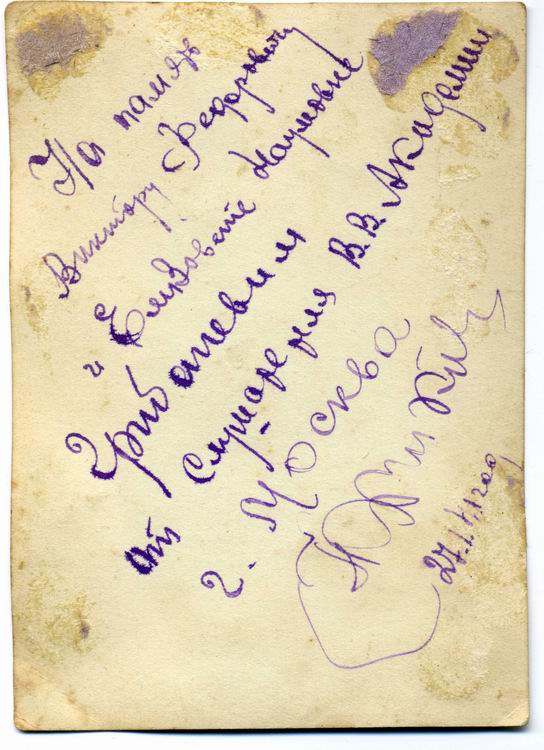 На память
Виктору Федоровичу
и Елизовете Наумовне
Грибаневим
от слушателя В.В. Академии
г. Москва
27.I.41 года